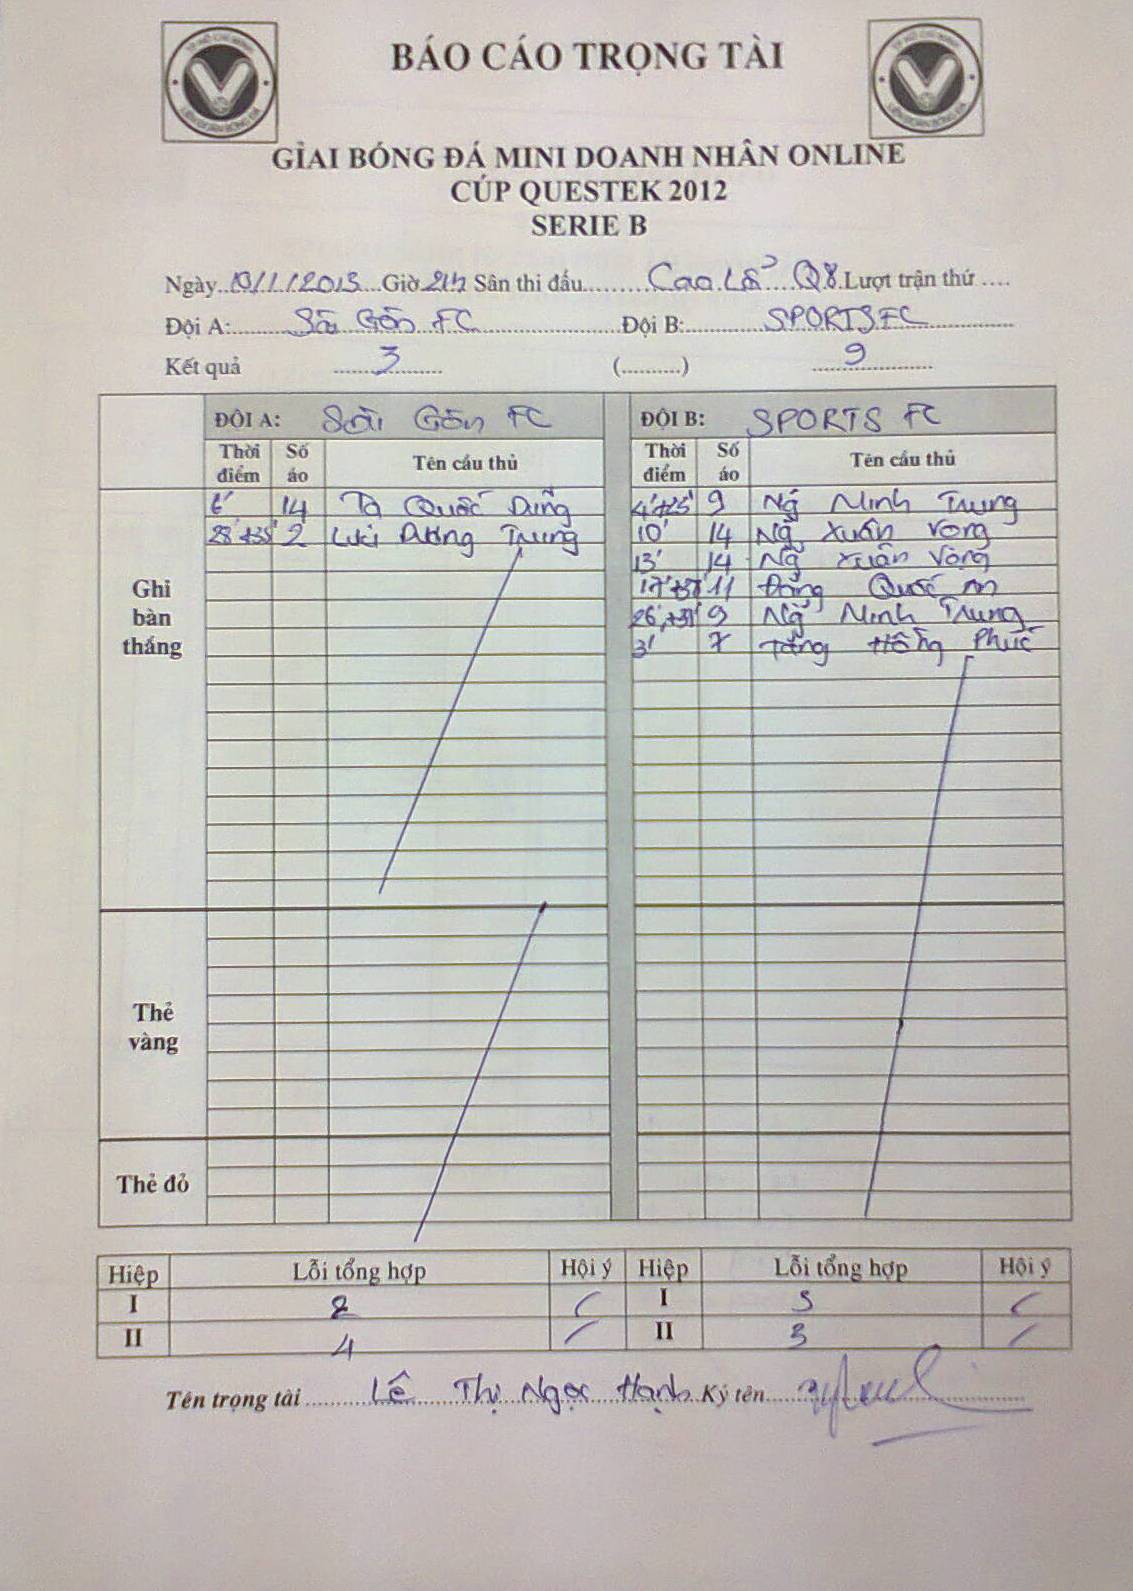 TP HỒ CHÍ MINH
LIÊN ĐOÀN BÓNG ĐÁ
BÁO CÁO TRỌNG TÀI
TP HỒ CHÍ MINH
LIÊN ĐOÀN BÓNG ĐÁ
GIẢI BÓNG ĐÁ MINI DOANH NHÂN ONLINE
CÚP QUESTEK 2012
SERIE B
Ngày..13/1/2013....Giờ 21h Sân thi đấu.........Cao Lỗ Q8.Lượt trận thứ ....
Đội A:.........Sài Gòn FC.........Đội B:.........SPORTS FC.........
Kết quả 3 (..........) 9
ĐỘI A: Sài Gòn FC ĐỘI B: SPORTS FC
Thời điểm Số áo Tên cầu thủ Thời điểm Số áo Tên cầu thủ
Ghi bàn thắng
6' 14 Tạ Quốc Dũng 4'+25' 9 Ng Minh Trung
28'+35' 2 Dương Trung 10' 14 Ng Xuân Vọng
13' 14 Ng Xuân Vọng
11 Đặng Quốc An
9 Ng Minh Trung
3' 7 Tăng Hồng Phúc
Thẻ vàng
Thẻ đỏ
Hiệp Lỗi tổng hợp Hội ý Hiệp Lỗi tổng hợp Hội ý
I 2 / I 5 /
II 4 / II 3 /
Tên trọng tài ..........Lê Thị Ngọc Hạnh Ký tên..........